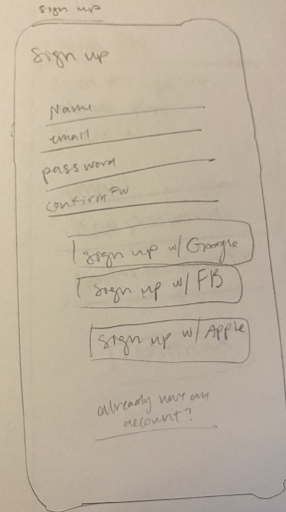 sign up
Sign up
Name
email
password
confirm PW
sign up w/ Google
sign up w/ FB
sign up w/ Apple
already have an
account?